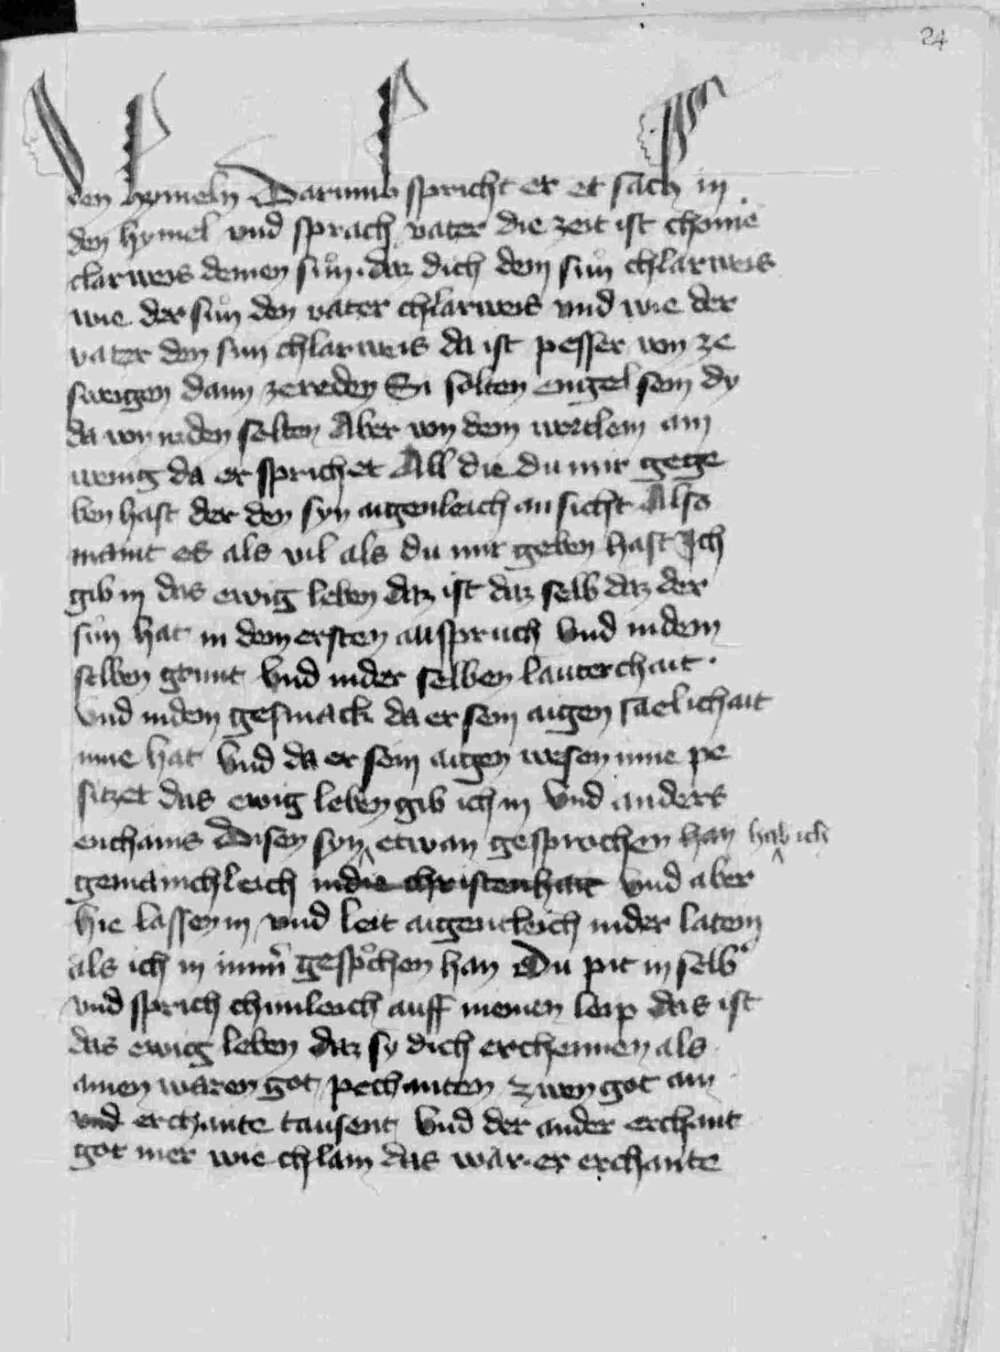 24
den hymeln Darumb spricht er er sach in
den hymel vnd sprach vater die zeit ist chome
clarweis deinen sun. daz dich dein sun chlarweis
wie der sun den vater chlarweis vnd wie der
vater den sun chlarweis da ist pesser von ze
sweigen dann ze reden Si solten engel sein dy
da von reden solten Aber von dem wortlein ain
wenig da er sprichet All die du mir gege
ben hast der den syn aigenleich an sicht Also
maint es als vil als du mir geben hast Ich
gib in das ewig leben daz ist daz selb daz der
sun hat in dem ersten ausspruch Vnd in dem
selben grunt Vnd in der selben lauterchait.
Vnd in dem gesmack da er sein aigen saelichait
inne hat Vnd da er sein aigen wesen inne pe
sitzet das ewig leben gib ich in Vnd anders
enchains Disen syn etwan gesprochen han hab ich
gemainchleich in die christenhait vnd aber
hie lassen in vnd leit aigentleich in der latein
als ich in gesprochen han Du pit in selb
vnd sprich chunleich auff meinen leip das ist
das ewig leben daz sy dich erchennen als
ainen waren got pechanten zwen got ain
vnd erchante tausent Vnd der ander erchant
got mer wie chlain das wär. er erchante